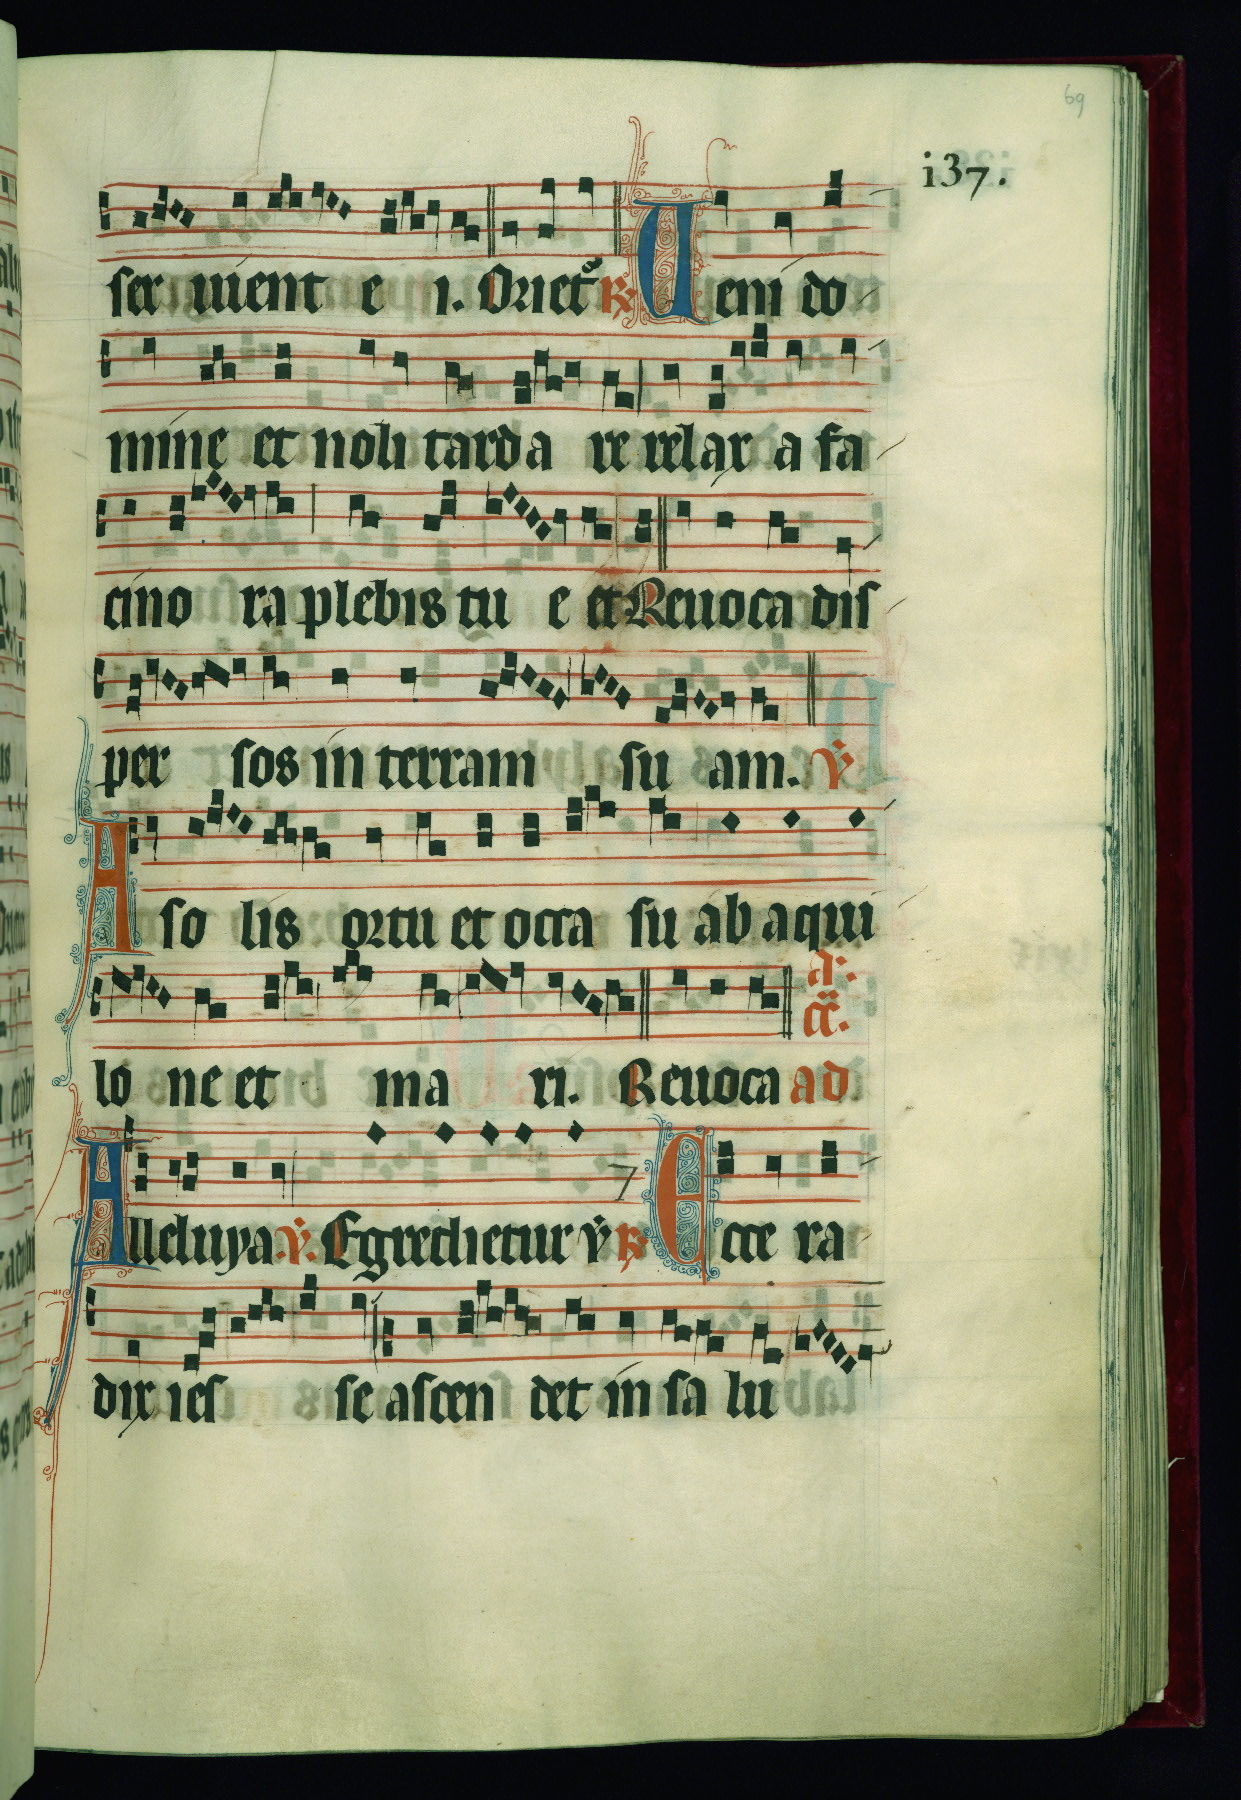 69
i37.
ser uient e i. Oriet℟ Ueni do
mine et noli tarda re relax a fa
cino ra plebis tu e et Reuoca dis
per sos in terram su am. ℣
A so lis ortu et occa su ab aqui
lo ne et ma ri. Reuoca ad
Alleluya ℣. Egredietur ℣ ℟ Ecce ra
dix ies se ascen det in sa lu